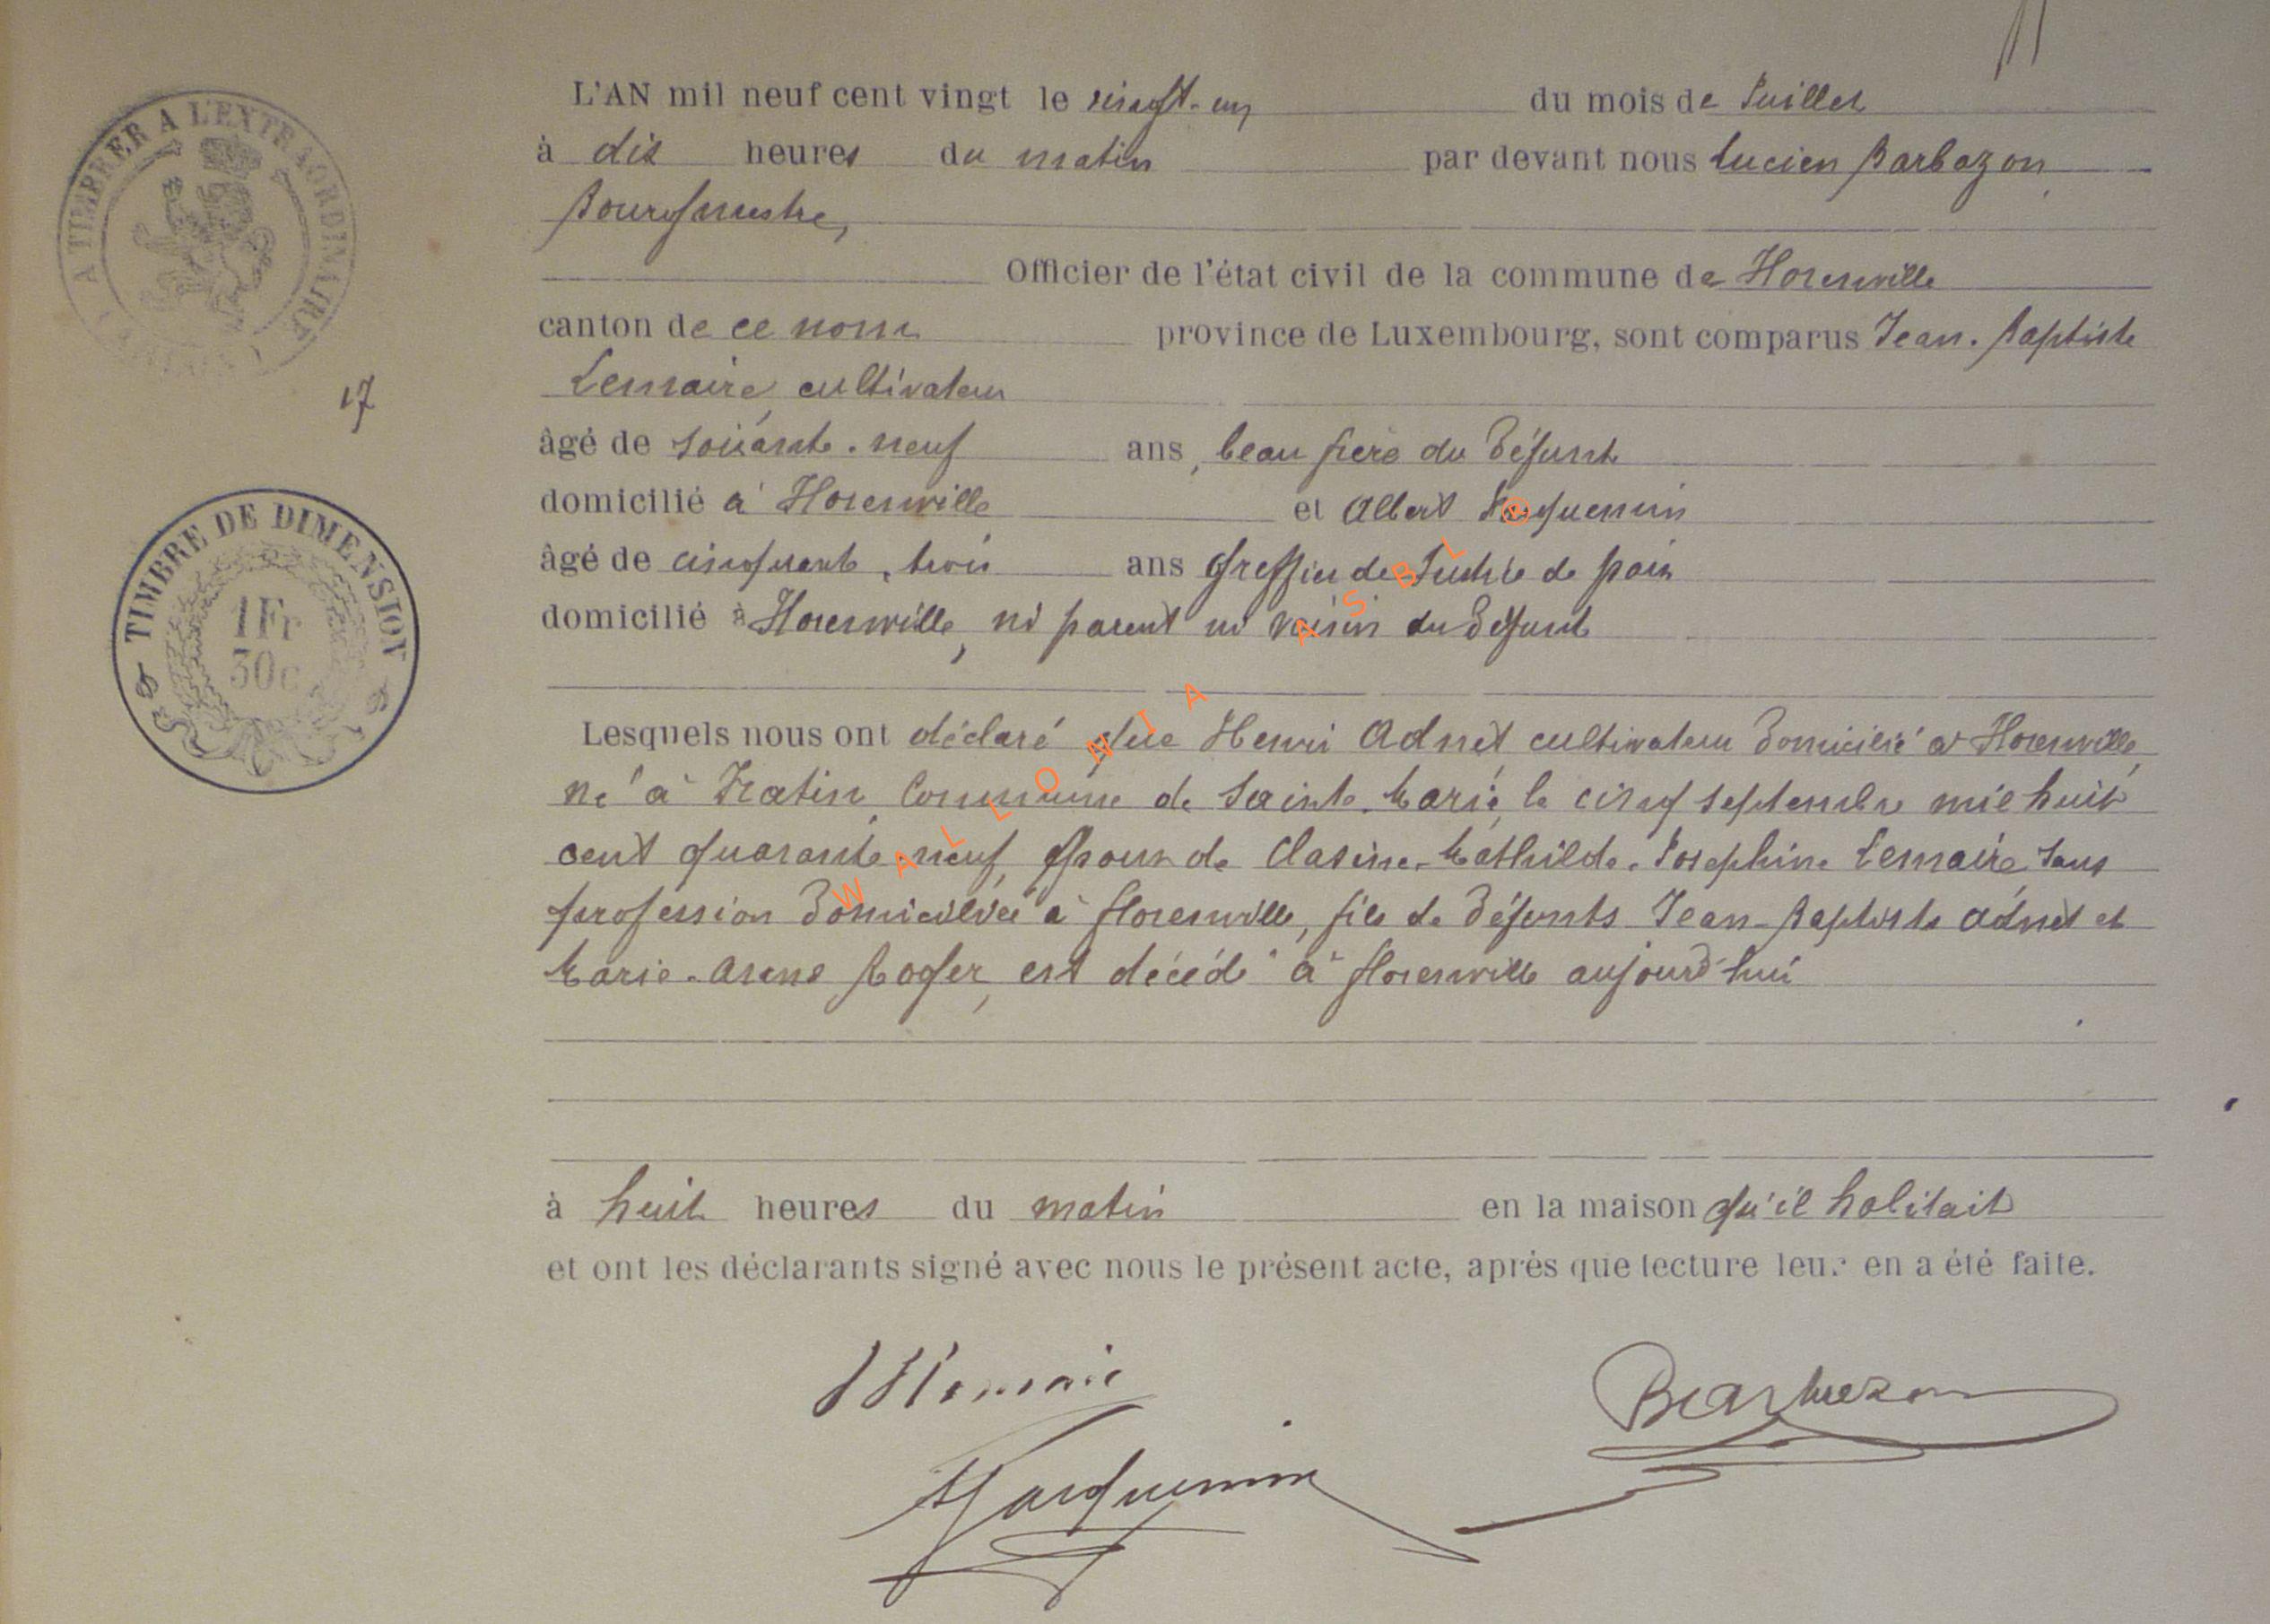 A TIMBRER A L'EXTRAORDINAIRE
17
TIMBRE DE DIMENSION
1Fr
30c
L'AN mil neuf cent vingt le vingt-un du mois de Juillet
à dix heures du matin par devant nous Lucien Barbazon
Bourgmestre,
Officier de l'état civil de la commune de Florenville
canton de ce nom province de Luxembourg, sont comparus Jean-Baptiste
Lemaire, cultivateur
âgé de soixante-neuf ans, beau frère du défunt
domicilié à Florenville et Albert Jacquemin
âgé de cinquante-trois ans Greffier de Justice de paix
domicilié à Florenville, ni parent ni voisin du défunt
Lesquels nous ont déclaré que Henri Adnet cultivateur domicilié à Florenville,
né à Fratin, Commune de Sainte-Marie, le cinq septembre mil huit
cent quarante neuf, Epoux de Clasine-Mathilde-Joséphine Lemaire sans
profession domiciliée à Florenville, fils de défunts Jean-Baptiste Adnet et
Marie-Anne Roger, est décédé à Florenville aujourd'hui
à huit heures du matin en la maison qu'il habitait
et ont les déclarants signé avec nous le présent acte, après que lecture leur en a été faite.
JBLemaire
Barbazon
AJacquemin
WALLONIA ASBL ®